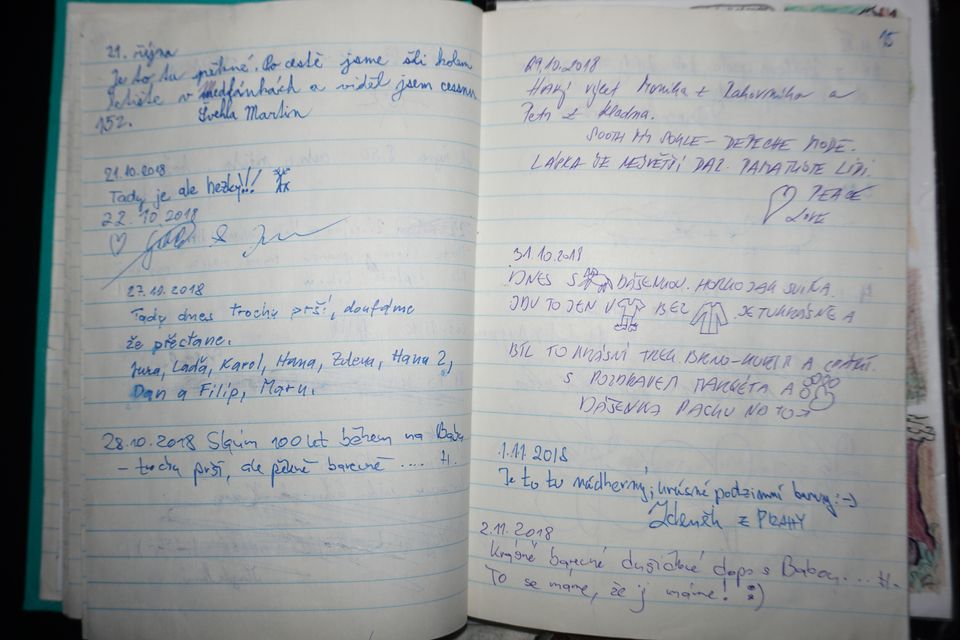 21. října
Je to tu pěkné. Po cestě jsme šli kolem
letiště v Medlánkách a viděl jsem cessnu
152. Švehla Martin
21.10.2018
Tady je ale hezky!!!
22.10.2018
&
27.10.2018
Tady dnes trochu prší, doufáme
že přestane.
Jura, Laďa, Karol, Hana, Zdena, Hana 2,
Dan a Filip, Maru.
28.10.2018 Slavím 100 let během na Babu
– trochu prší, ale pěkně barevně .... H.
15
29.10.2018
výlet Monika z a
Petr z Kladna.
SOOTH MY SOULE – DEPECHE MODE.
LÁSKA JE NEJVĚTŠÍ DAR. PAMATUJTE LIDI.
PEACE
LOVE
31.10.2018
DNES S DÁŠENKOU. HORKO JAK SVIŇA.
JDU TO JEN V BEZ JE TU KRÁSNĚ A
BYL TO KRÁSNÝ TREK BRNO–KUŘIM A ZPÁTKY.
S POZDRAVEM MARKÉTA A
DÁŠENKA
1.11.2018
Je to tu nádherný, krásné podzimní barvy :-)
Zdeněk z PRAHY
2.11.2018
Krásně barevné dušičkové dopo s Babou.... H.
To se máme, že ji máme! :)